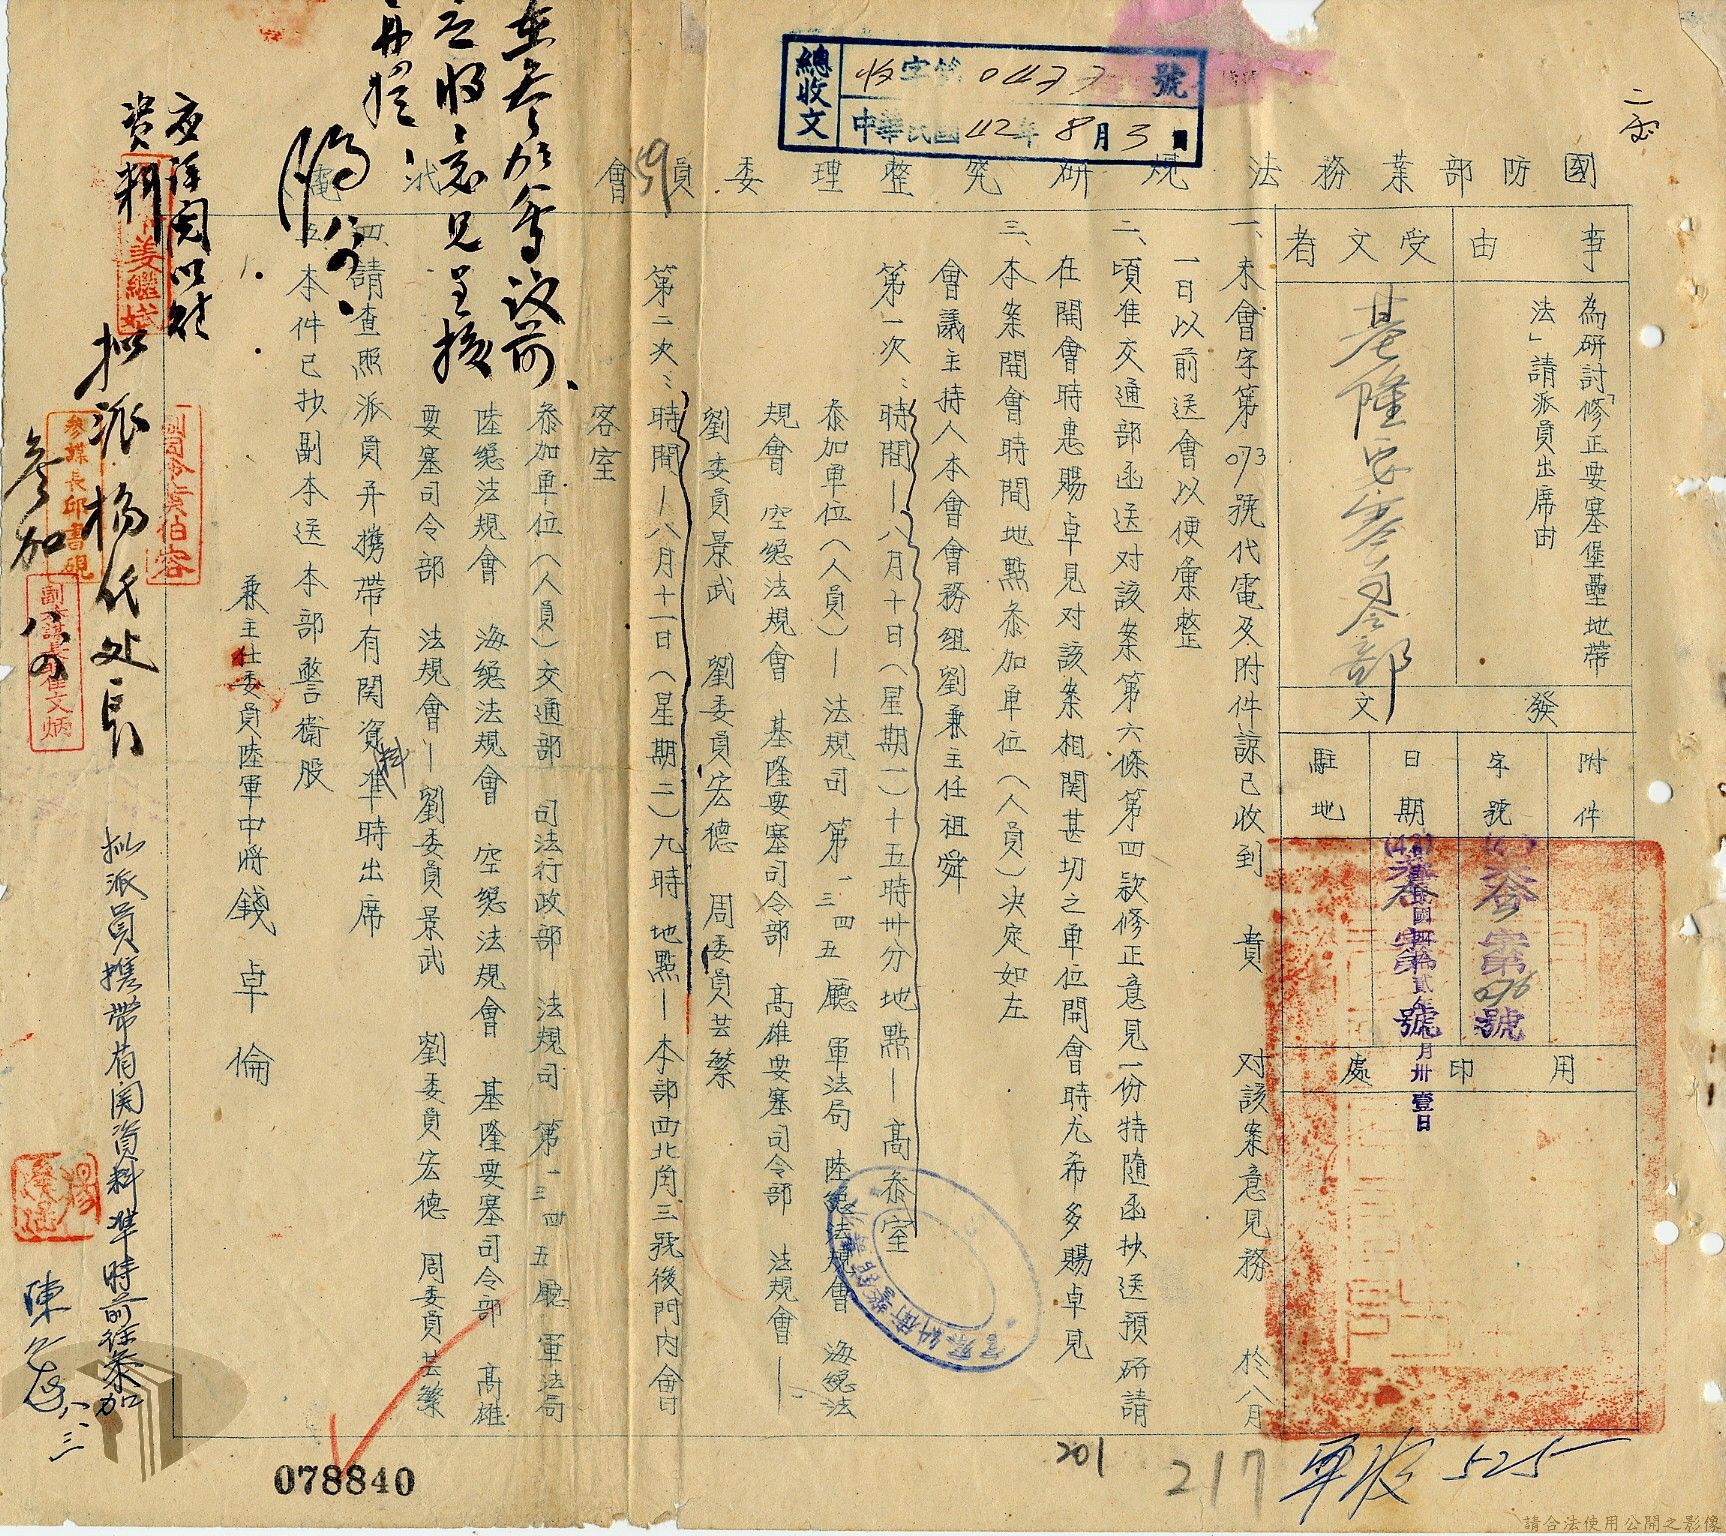 總收文 收字第0477號
中華民國42年8月3日
國防部業務法規研究整理委員會代電
事由
為研討「修正要塞堡壘地帶
法」請派員出席由
受文者
基隆要塞司令部
發文
附件
字號
參字第076號
日期
中華民國四拾貳年七月卅壹日
駐地
用印處
一、未會字第073號代電及附件諒已收到 貴 對該案意見務於八月
一日以前送會以便彙整
二、頃准交通部函送对該案第六條第四款修正意見一份特隨函抄送預研請
在開會時惠賜卓見对該案相関甚切之單位開會時尤希多賜卓見
三、本案開會時間地點參加單位(人員)決定如左
會議主持人本會會務組劉兼主任祖舜
第一次:時間—八月十日(星期一)十五時卅分地點—高參室
參加單位(人員)—法規司 第一三四五廳 軍法局 陸總法規會 海總法
規會 空總法規會 基隆要塞司令部 高雄要塞司令部 法規會—
劉委員景武 劉委員宏德 周委員芸繁
第二次:時間—八月十一日(星期二)九時地點—本部西北角三號後門內會
客室
參加單位(人員)交通部 司法行政部 法規司 第一三四五廳 軍法局
陸總法規會 海總法規會 空總法規會 基隆要塞司令部 高雄
要塞司令部 法規會—劉委員景武 劉委員宏德 周委員芸繁
四、請查照派員并攜帶有関資料準時出席
五、本件已抄副本送本部警衛股
兼主任委員陸軍中將錢卓倫
在參加會议前
意見呈核
資料
擬派楊代處長
參加
八四
擬派員攜帶有関資料準時前往參加
八、三
姜繼斌
參謀長邱書硯
副參謀長崔文炳
59
201
217
525
078840
請合法使用公開之影像